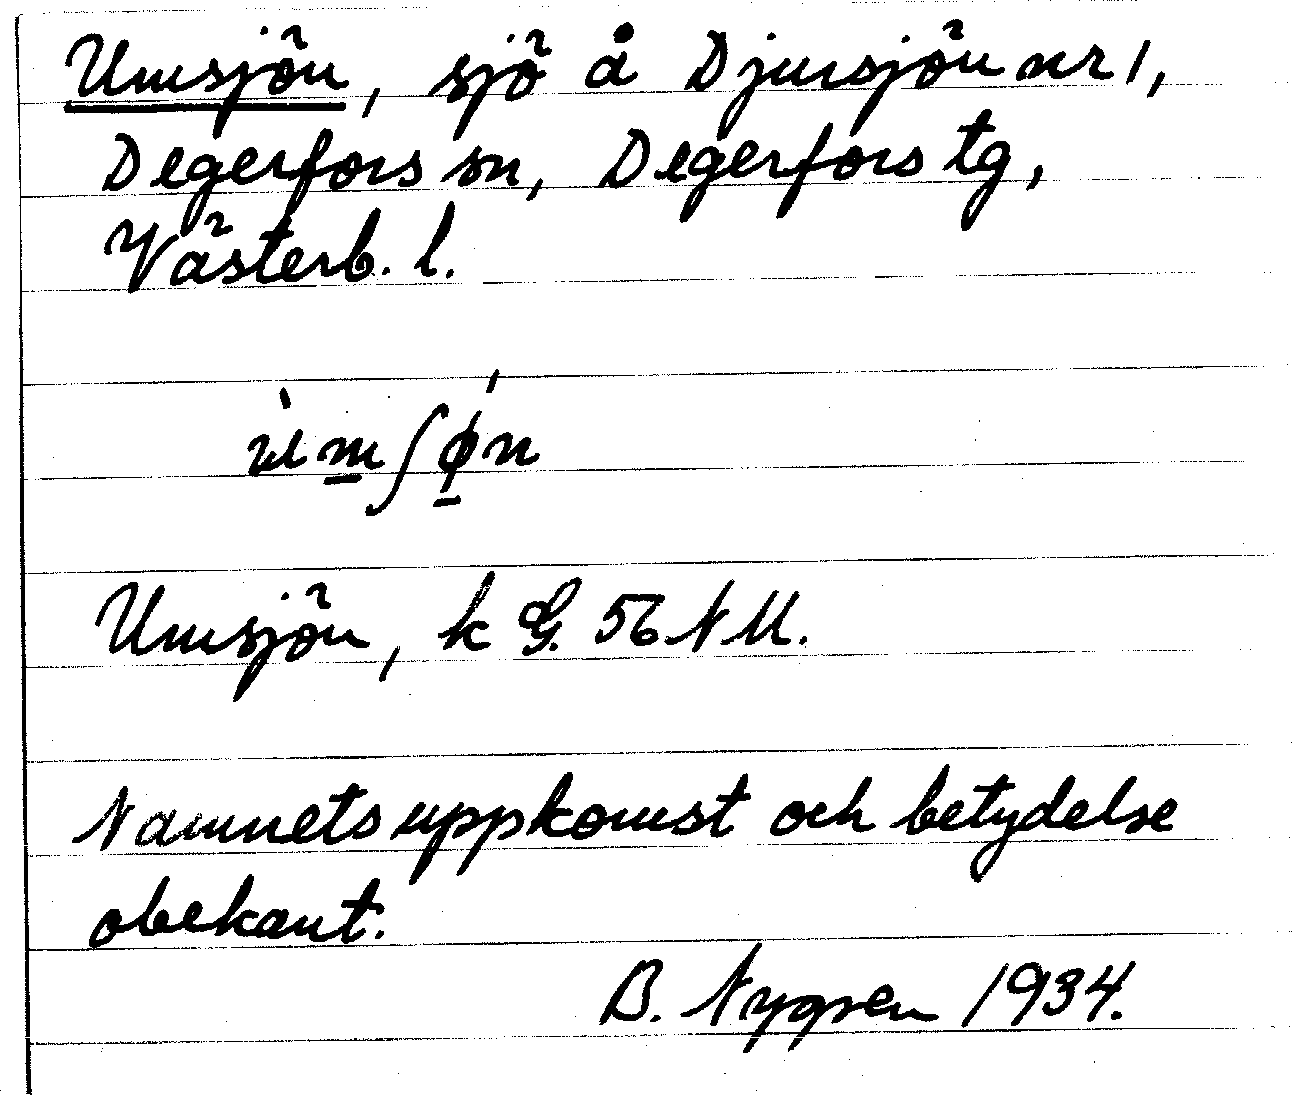 Umsjön, sjö å Djursjön nr 1,
Degerfors sn, Degerfors tg,
Västerb. l.
Umsjön, k G. 56 NU.
Namnets uppkomst och betydelse
obekant.
B. Nygren 1934.